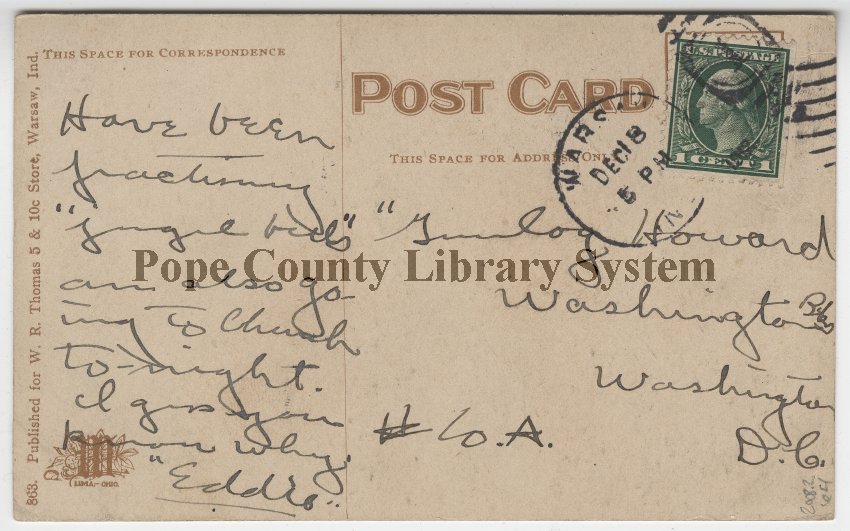 THIS SPACE FOR CORRESPONDENCE
Have been
practising
"jingle bells"
am also go-
ing to Church
to-night.
I guess you
know why.
"Eddie".
863. Published for W. R. Thomas 5 & 10c Store, Warsaw, Ind.
LIMA,-OHIO.
POST CARD
THIS SPACE FOR ADDRESS ONLY
U.S. POSTAGE
1 CENT 1
WARS
DEC 18
5 PM
Howard
Washington
Washington
D.C.
# 6.A.
Pope County Library System